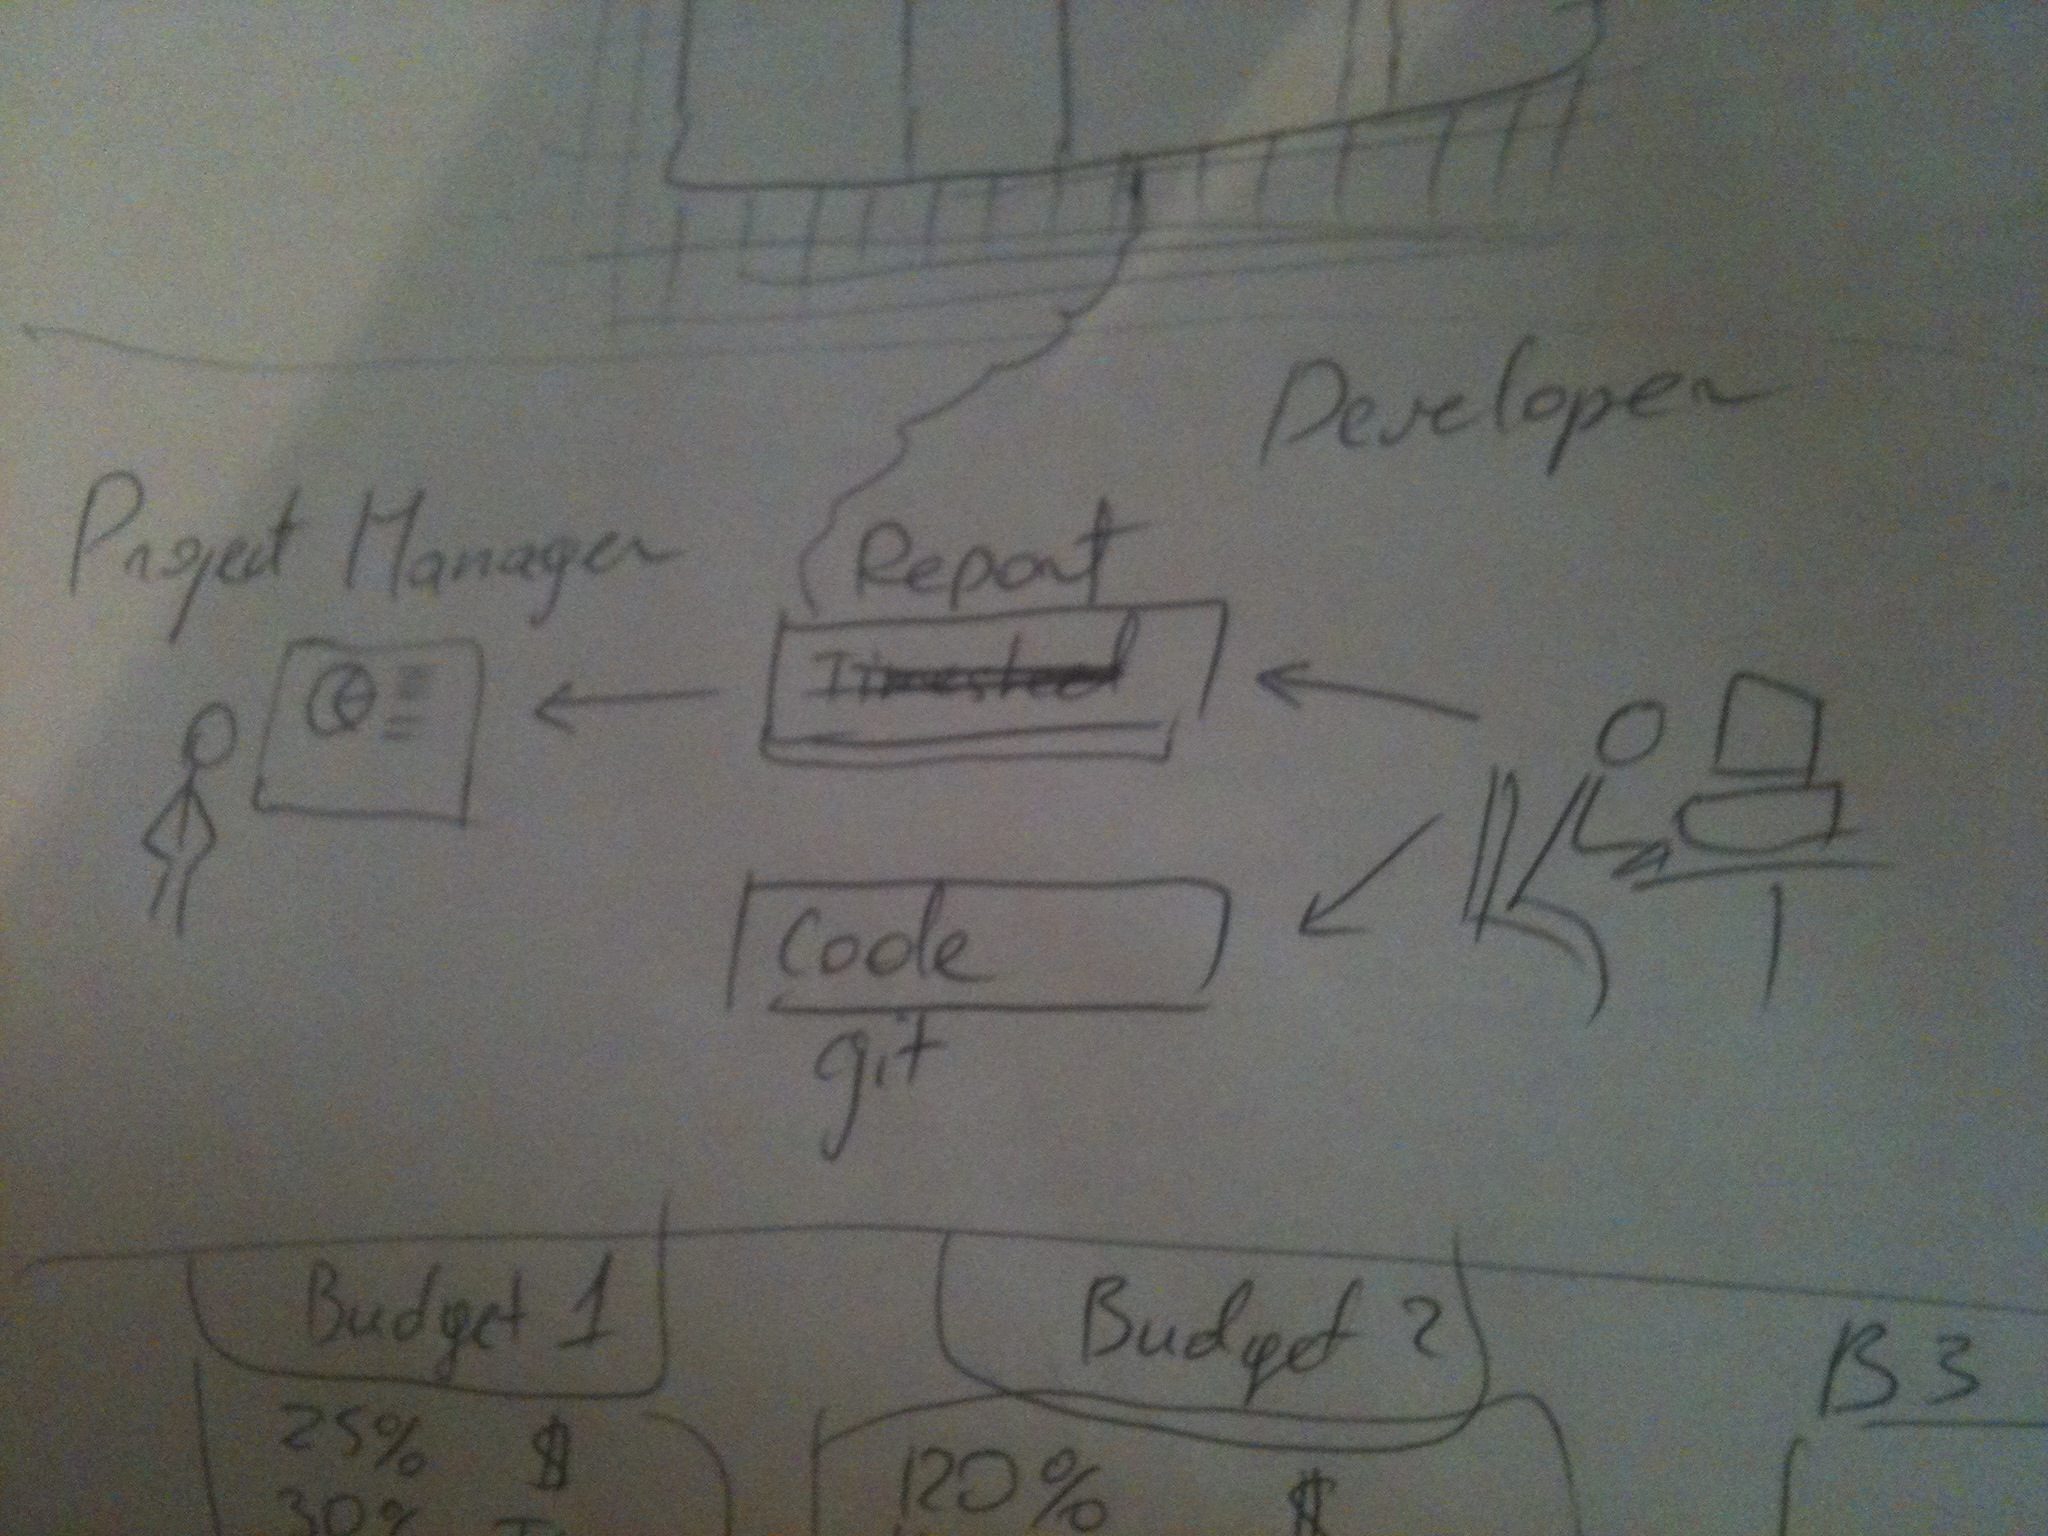 Developer
Project Manager
Report
Timesheet
Code
git
Budget 1
Budget 2
B 3
25% $
120% $
30%